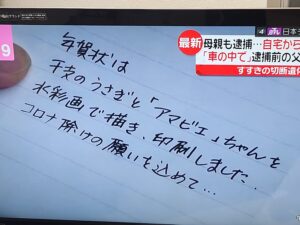 9
年賀状は
干支のうさぎと「アマビエ」ちゃんを
水彩画で描き、印刷しました…
コロナ除けの願いを込めて…
最新
母親も逮捕…自宅から
「車の中で」逮捕前の父
すすきの切断遺体
4
日本テ